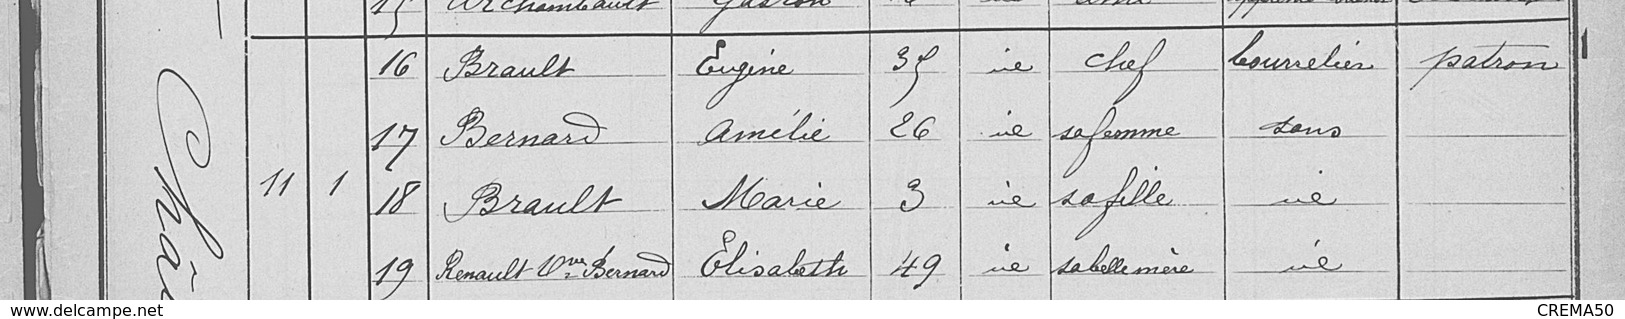 15 Archambault Gaston
16 Brault Eugène 35 id chef bourrelier patron
17 Bernard Amélie 26 id sa femme sans
11 1 18 Brault Marie 3 id sa fille id
19 Renault Vve Bernard Élisabeth 49 id sa belle mère id
Chât
www.delcampe.net
CREMA50